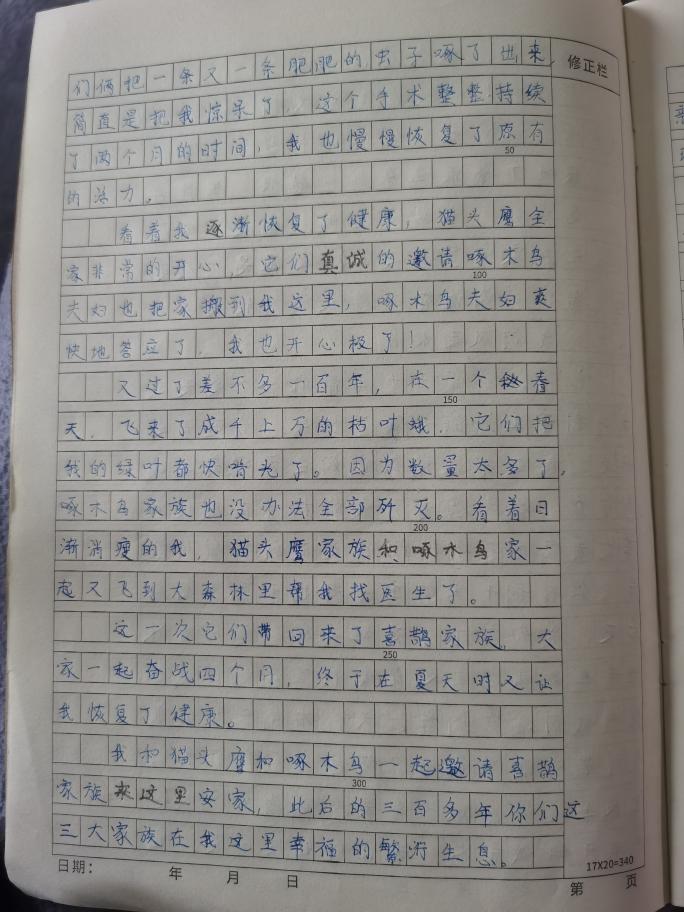 们俩把一条又一条肥肥的虫子啄了出来,
修正栏
简直是把我惊呆了。这个手术整整持续
了两个月的时间,我也慢慢恢复了原有
50
的活力。
看着我逐渐恢复了健康,猫头鹰全
家非常的开心,它们真诚的邀请啄木鸟
100
夫妇也把家搬到我这里,啄木鸟夫妇爽
快地答应了,我也开心极了!
又过了差不多一百年,在一个春
150
天,飞来了成千上万的枯叶蛾,它们把
我的绿叶都快啃光了。因为数量太多了,
啄木鸟家族也没办法全部歼灭。看着日
200
渐消瘦的我,猫头鹰家族和啄木鸟家一
起又飞到大森林里帮我找医生了。
这一次它们带回来了喜鹊家族,大
250
家一起奋战四个月,终于在夏天时又让
我恢复了健康。
我和猫头鹰和啄木鸟一起邀请喜鹊
300
家族来这里安家,此后的三百多年你们这
三大家族在我这里幸福的繁衍生息。
17X20=340
日期: 年 月 日 第 页